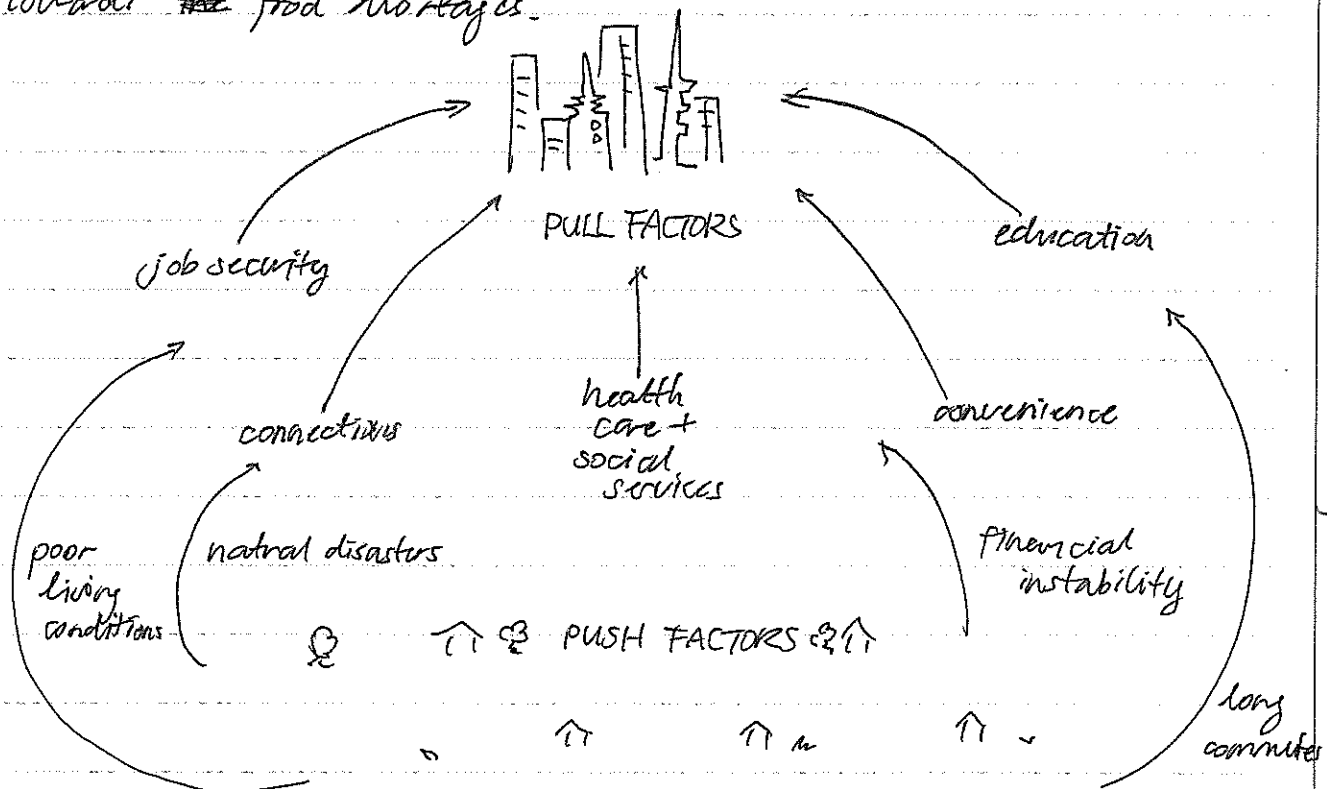 food shortages.
PULL FACTORS
job security
education
connections
health
care +
social
services
convenience
poor
living
conditions
natral disasters
financial
instability
PUSH FACTORS
long
commutes